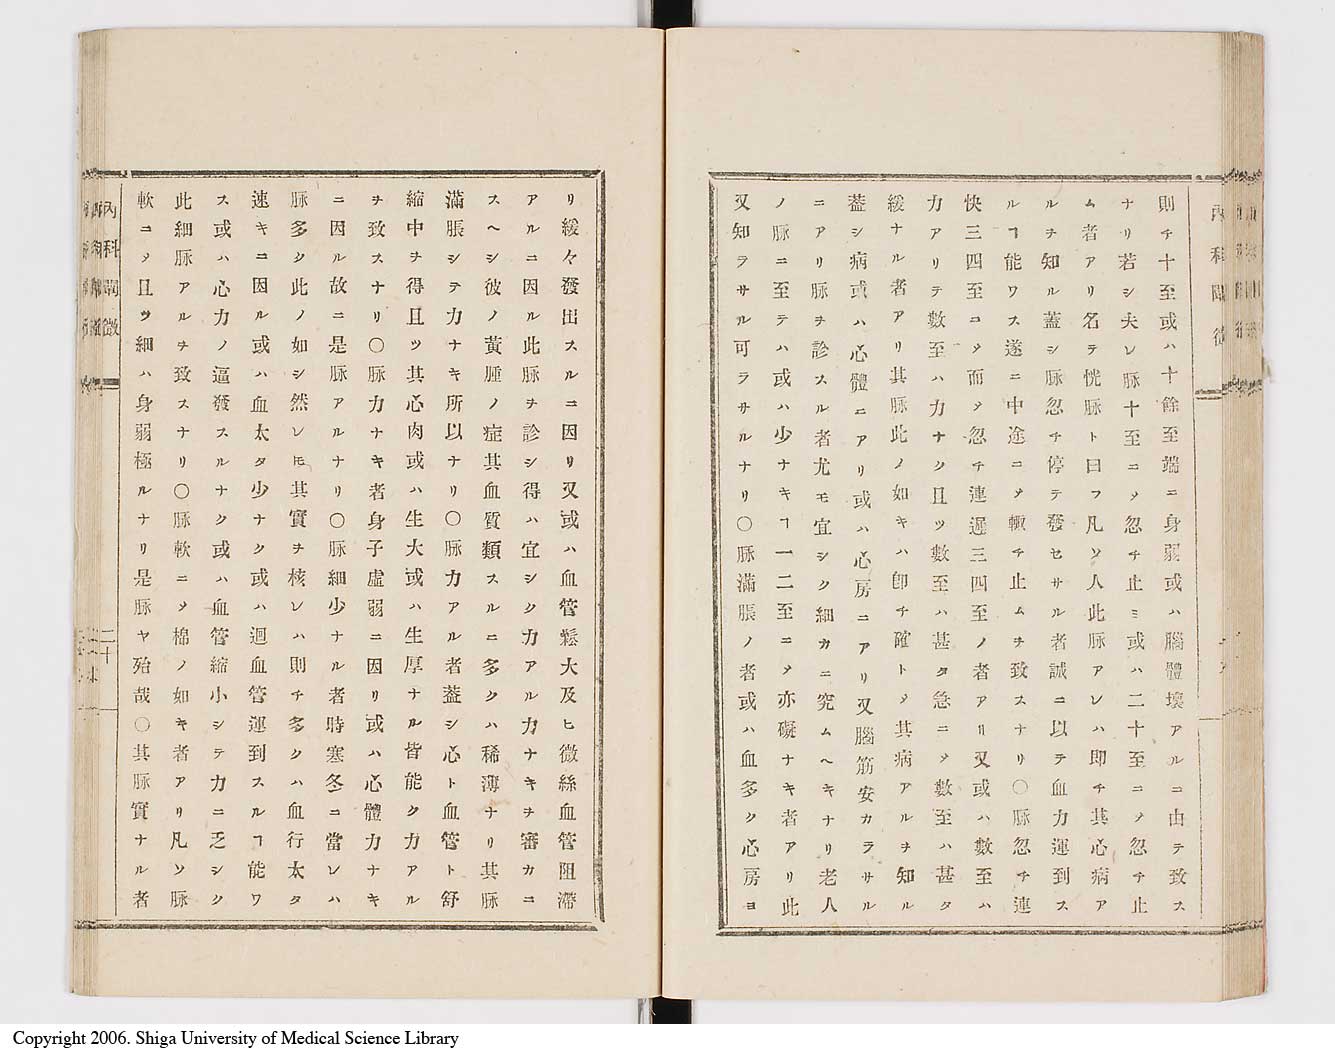 則チ十至或ハ十餘至端ニ身弱或ハ腦體壞アルニ由テ致ス
ナリ若シ夫レ脉十至ニㄨ忽チ止ミ或ハ二十至ニㄨ忽チ止
ム者アリ名テ恍脉ト曰フ凡ソ人此脉アレハ即チ其心病ア
ルヲ知ル蓋シ脉忽チ停テ發セサル者誠ニ以テ血力運到ス
ルヿ能ワス遂ニ中途ニㄨ輙チ止ムヲ致スナリ〇脉忽チ連
快三四至ニㄨ而ㄨ忽チ連遲三四至ノ者アリ又或ハ數至ハ
力アリテ數至ハ力ナク且ツ數至ハ甚タ急ニㄨ數至ハ甚タ
緩ナル者アリ其脉此ノ如キハ卽チ確トㄨ其病アルヲ知ル
葢シ病或ハ心體ニアリ或ハ心房ニアリ又腦筋安カラサル
ニアリ脉ヲ診スル者尤モ宜シク細カニ究ムヘキナリ老人
ノ脉ニ至テハ或ハ少ナキヿ一二至ニㄨ亦礙ナキ者アリ此
又知ラサル可ラサルナリ〇脉滿脹ノ者或ハ血多ク心房ヨ
リ緩々發出スルニ因リ又或ハ血管鬆大及ヒ微絲血管阻滯
アルニ因ル此脉ヲ診シ得ハ宜シク力アル力ナキヲ審カニ
スヘシ彼ノ黃腫ノ症其血質類スルニ多クハ稀薄ナリ其脉
滿脹シテ力ナキ所以ナリ〇脉力アル者葢シ心ト血管ト舒
縮中ヲ得且ツ其心肉或ハ生大或ハ生厚ナル皆能ク力アル
ヲ致スナリ〇脉力ナキ者身子虛弱ニ因リ或ハ心體力ナキ
ニ因ル故ニ是脉アルナリ〇脉細少ナル者時寒冬ニ當レハ
脉多ク此ノ如シ然レㇳモ其實ヲ核レハ則チ多クハ血行太タ
速キニ因ル或ハ血太タ少ナク或ハ迴血管運到スルヿ能ワ
ス或ハ心力ノ逼發スルナク或ハ血管縮小シテ力ニ乏シク
此細脉アルヲ致スナリ〇脉軟ニㄨ棉ノ如キ者アリ凡ソ脉
軟ニㄨ且ツ細ハ身弱極ルナリ是脉ヤ殆哉〇其脉實ナル者
內科闡微
二十
Copyright 2006. Shiga University of Medical Science Library